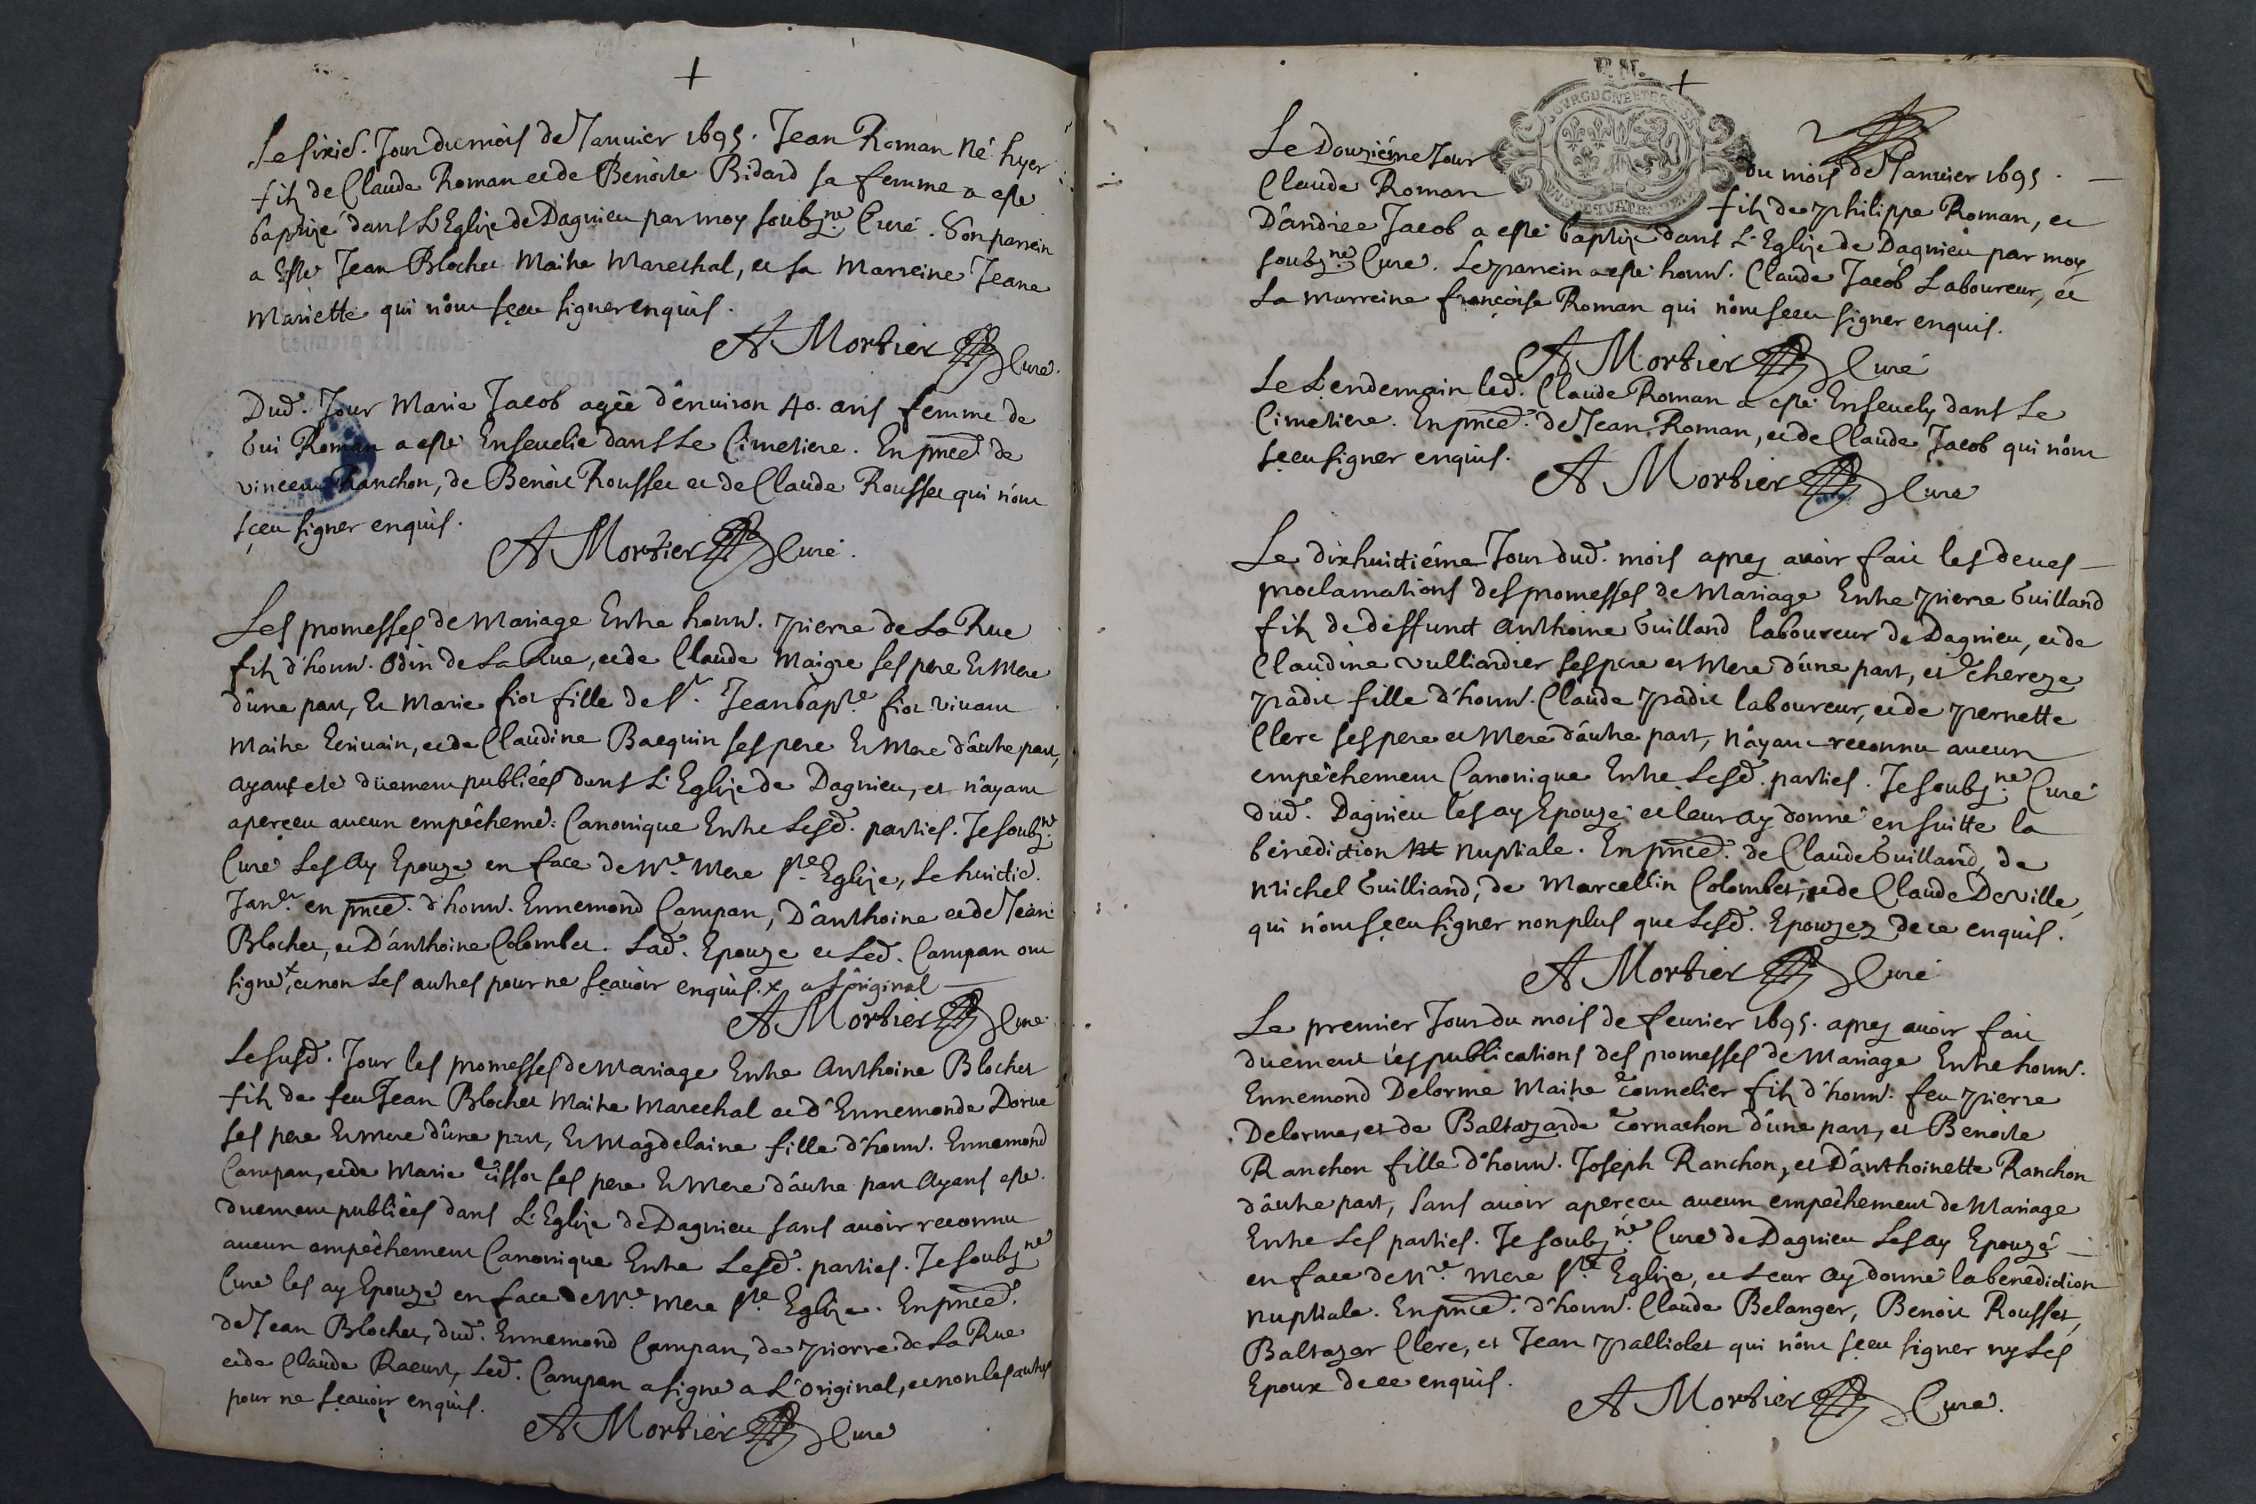 Le sixie. Jour du mois de Januier 1695. Jean Roman né hyer
filz de Claude Roman et de Benoite Bidard sa femme a esté
baptizé dans L'Eglize de Dagnieu par moy soubz.né Curé. Son parrein
a Esté Jean Blochet Maitre Mareschal, et sa Marreine Jeane
Mariette qui n'ont sçeu signer enquis.
A Mortier Curé.
Dud. Jour Marie Jacob agée d'enuiron 40. ans femme de
Gui Roman a esté Enseuelie dans Le Cimetiere. En pnce. de
vincent Ranchon, de Benoit Rousset et de Claude Rousset qui n'ont
sçeu signer enquis.
A Mortier Curé.
Les promesses de Mariage Entre honn. pierre de La Rue
filz d'honn. Odin de La Rue, et de Claude Maigre ses pere Et Mere
d'une part, Et Marie fior fille de Sr. Jean bapt.e fior viuant
Maitre Ecriuain, et de Claudine Bacquin ses pere Et Mere d'autre part,
ayant eté düement publiées dans L'Eglize de Dagnieu, et n'ayant
aperçeu aucun empêcheme. Canonique Entre Lesd. parties. Je soubz.né
Curé Les Ay Epouzé en face de Nre. Mere Ste. Eglize, Le huictie.
Janer. en pnce. d'honn. Ennemond Campan, D'anthoine et de Jean
Blochet, et D'anthoine Colombet. Lad. Epouze et Led. Campan ont
signé+, et non Les autres pour ne sçauoir enquis. + a L'original
A Mortier Curé
Le susd. Jour les promesses de Mariage Entre Anthoine Blochet
filz de feu Jean Blochet Maitre Mareschal et d'Ennemonde Dorue
ses pere Et Mere d'une part, Et Magdelaine fille d'honn. Ennemond
Campan, et de Marie Tissot ses pere Et Mere d'autre part Ayans esté
duement publiées dans L'Eglize de Dagnieu sans auoir reconnu
aucun empêchement Canonique Entre Lesd. parties. Je soubz.né
Curé les ay Epouzé en face de Nre. Mere Ste. Eglize. En pnce.
de Jean Blochet, dud. Ennemond Campan, de pierre de La Rue
et de Claude Racurt, Led. Campan a signé a L'original, et non les autres
pour ne sçauoir enquis.
A Mortier Curé
Le Douziéme Jour du mois de Januier 1695.
Claude Roman filz de philippe Roman, et
D'andree Jacob a esté baptizé dans L'Eglize de Dagnieu par moy
soubz.né Curé. Le parrein a esté honn. Claude Jacob Laboureur, et
La marreine françoise Roman qui n'ont sçeu signer enquis.
A Mortier Curé
Le Lendemain led. Claude Roman a esté Enseuely dans Le
Cimetiere. En pnce. de Jean Roman, et de Claude Jacob qui n'ont
sçeu signer enquis.
A Mortier Curé
Le dixhuictiéme Jour dud. mois aprez auoir fait les deues
proclamations des promesses de Mariage Entre pierre Guilland
filz de deffunct Anthoine Guilland laboureur de Dagnieu, et de
Claudine vulliardier ses pere et Mere d'une part, et Thereze
padit fille d'honn. Claude padit laboureur, et de pernette
Clerc ses pere et Mere d'autre part, N'ayant reconnu aucun
empêchement Canonique Entre Lesd. parties. Je soubz.né Curé
dud. Dagnieu les ay Epouzé et leur ay donné en suitte la
bénediction Nuptiale. En pnce. de Claude Guilland, de
Michel Guilliand, de Marcellin Colombet, et de Claude Deville,
qui n'ont sçeu signer non plus que Lesd. Epouzez de ce enquis.
A Mortier Curé
Le premier Jour du mois de feurier 1695. aprez auoir fait
duement les publications des promesses de Mariage Entre honn.
Ennemond Delorme Maitre Tonnelier filz d'honn. feu pierre
Delorme, et de Baltazarde Tornachon d'une part, et Benoite
Ranchon fille d'honn. Joseph Ranchon, et D'anthoinette Ranchon
d'autre part, sans auoir aperçeu aucun empechement de Mariage
Entre Les parties. Je soubz.né Curé de Dagnieu Les ay Epouzé
en face de Nre. Mere Ste. Eglize, et Leur Ay donné la benediction
nuptiale. En pnce. d'honn. Claude Belanger, Benoit Rousset,
Baltazar Clerc, et Jean palliolet qui n'ont sçeu signer ny Les
Epoux de ce enquis.
A Mortier Curé.